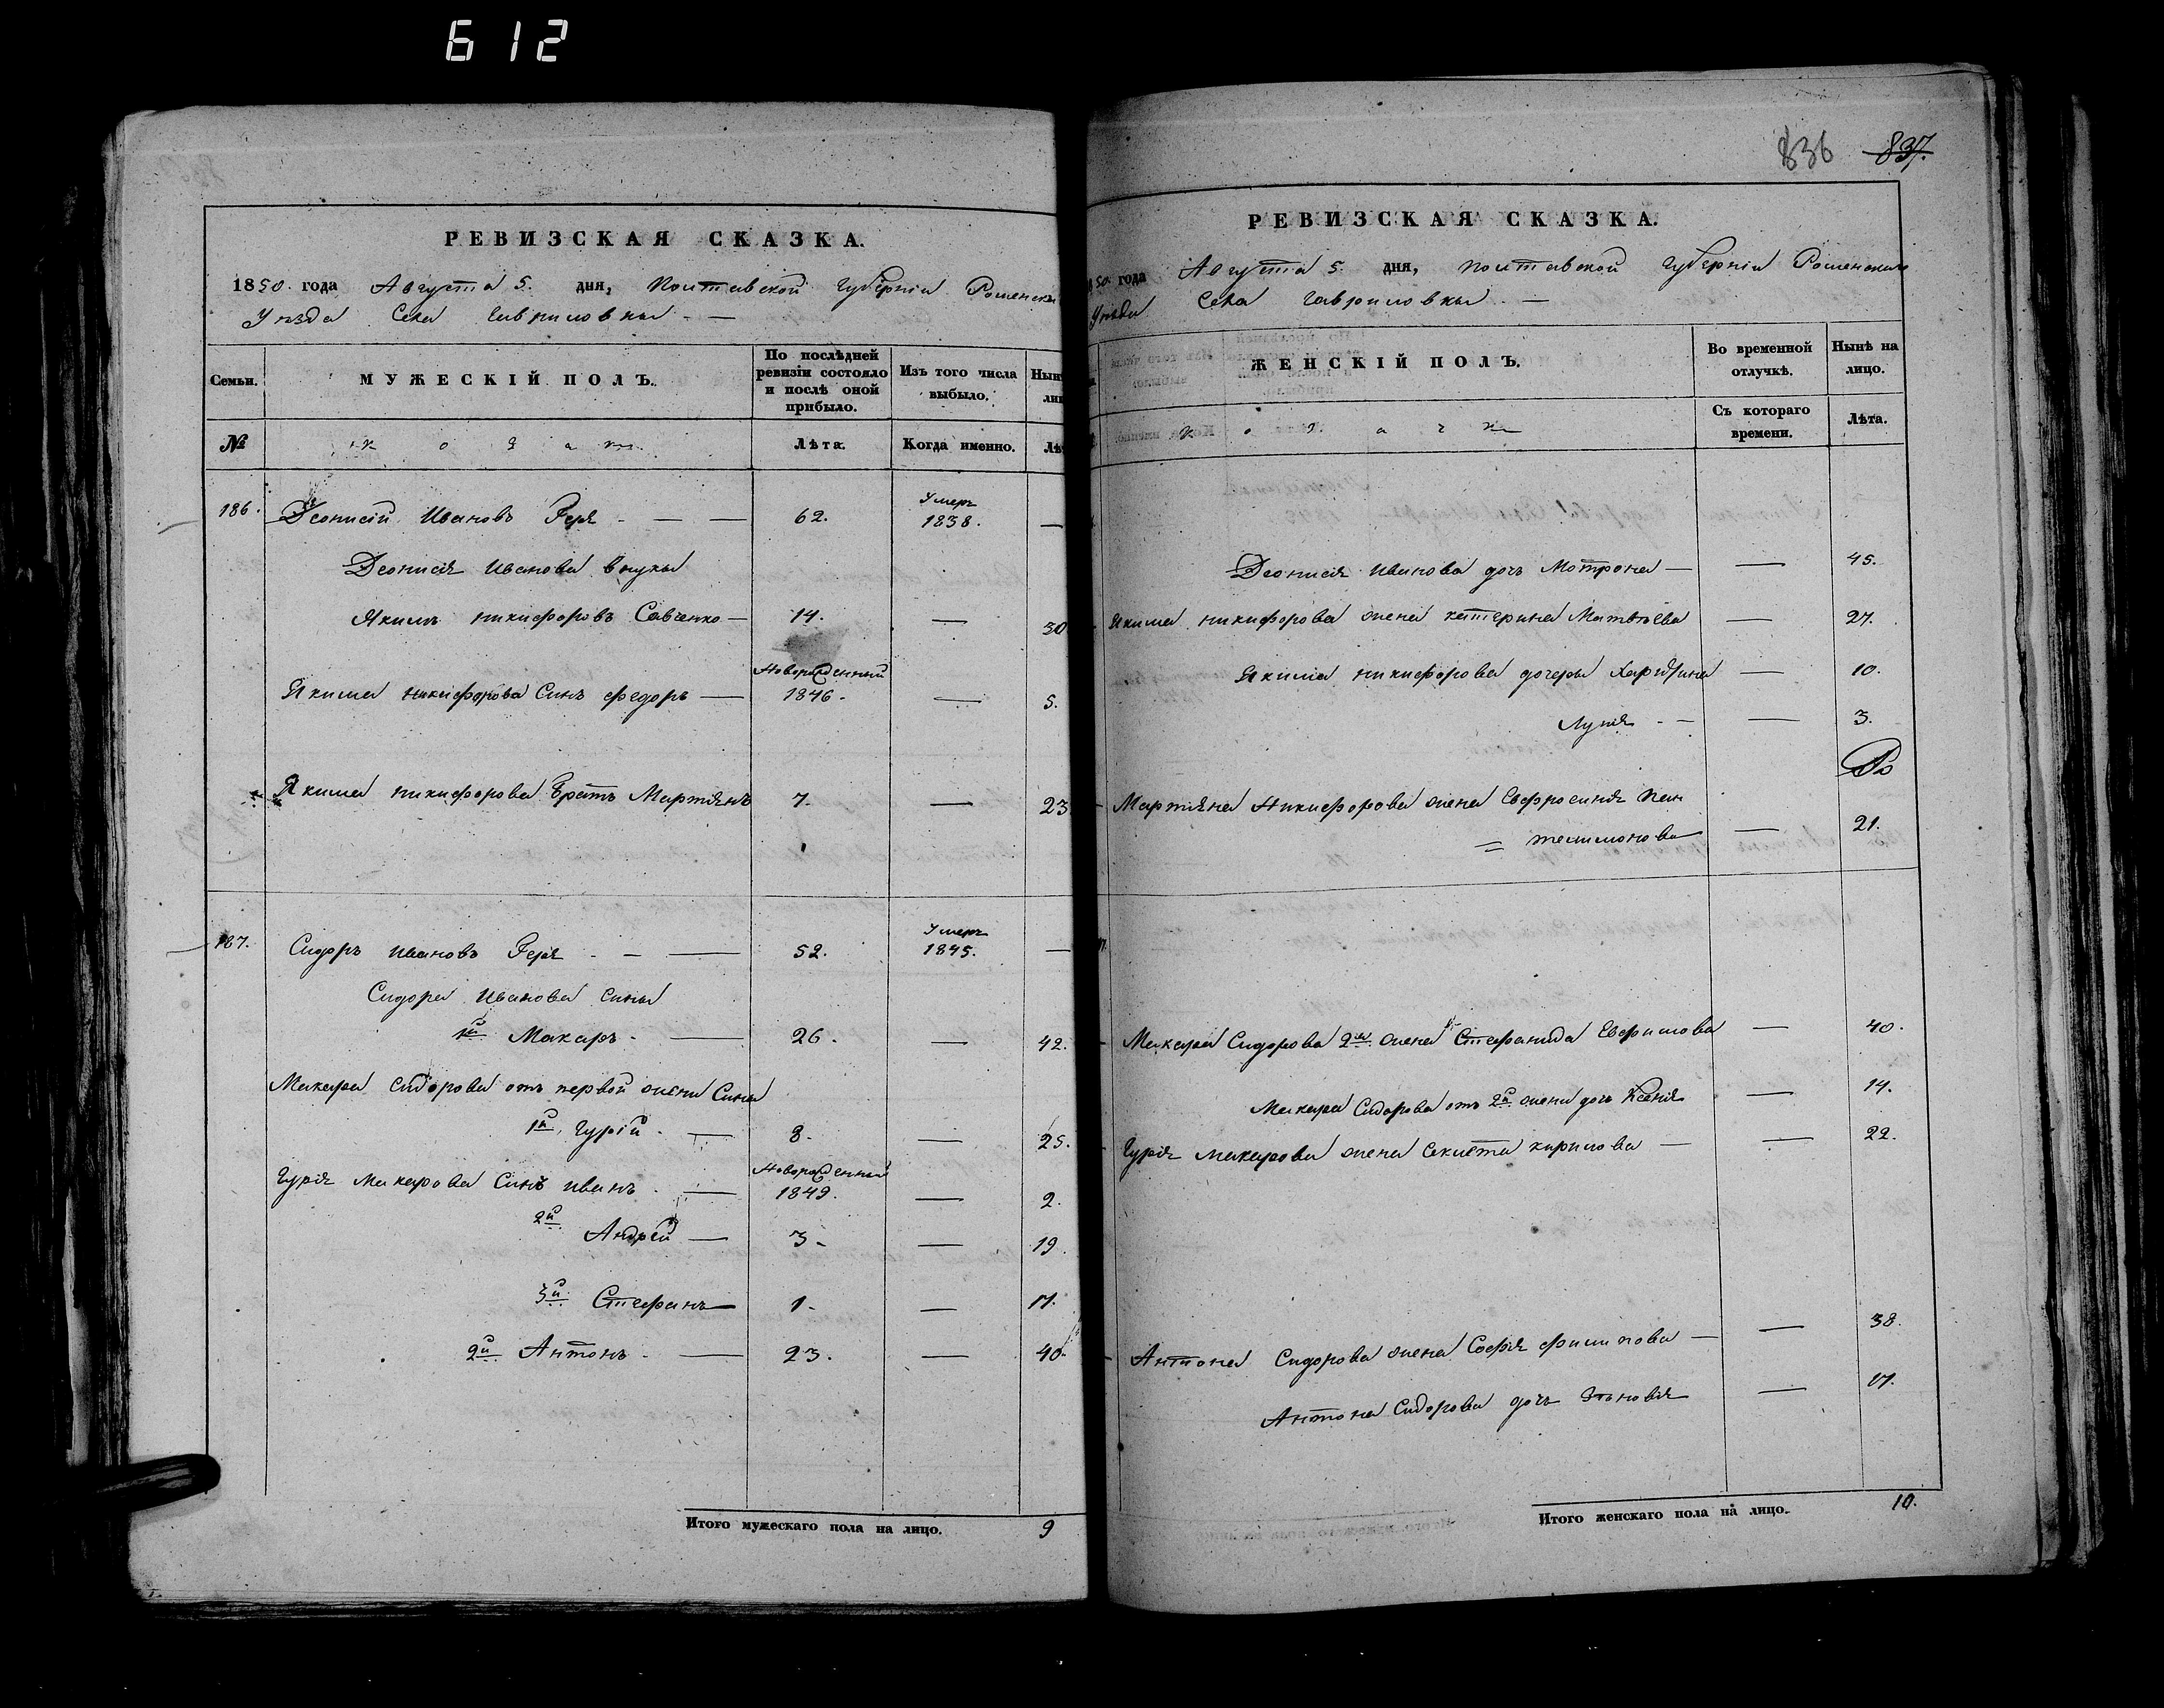 612
РЕВИЗСКАЯ СКАЗКА.
1850 года Августа 5. дня, Полтавской Губерніи Роменска
Уѣзда Села Гавриловки -
Семьи.
МУЖЕСКІЙ ПОЛЪ.
По послѣдней ревизіи состояло и послѣ оной прибыло.
Изъ того числа выбыло.
№
Лѣта.
Когда именно.
186. Деонисій Ивановъ Геря - 62. Умеръ 1838. —
Деонисія Иванова внуки
Якимъ Никифоровъ Савченко — 14. — 30
Якима Никифорова Синъ Федоръ — Новорожденный 1846. — 5.
Якима Никифорова Братъ Мартіянъ 7. — 23
187. Сидоръ Ивановъ Геря - — 52. Умеръ 1845. —
Сидора Иванова сины
1й Макаръ - — 26. — 42.
Макара Сидорова отъ первой жены Сины
1й Гурій - — 8. — 25.
Гурія Макарова Синъ Иванъ - — Новорожденный 1849. — 2.
2й Андрей — 3. — 19.
3й Стефанъ — 1. — 17.
2й Антонъ - — 23. — 40.
Итого мужескаго пола на лицо. 9
836 837.
РЕВИЗСКАЯ СКАЗКА.
50 года Августа 5. дня, Полтавской Губерніи Роменскаго
Уѣзда Села Гавриловки. —
ЖЕНСКІЙ ПОЛЪ.
Во временной отлучкѣ.
Нынѣ на лицо.
Съ котораго времени.
Лѣта.
Деонисія Иванова дочь Мотрона — — 45.
Якима Никифорова жена Катерина Матвѣева — 27.
Якима Никифорова дочеры Харитина — 10.
— 3.
Мартіяна Никифорова жена Евфросинія Пан
= телимонова — 21.
Макара Сидорова 2я жена Стефанида Евфимова — 40.
Макара Сидорова отъ 2й жены дочь Ксенія — 14.
Гурія Макарова жена Секлета Кирилова — — 22.
Антона Сидорова жена Софія Филипова — — 38.
Антона Сидорова дочь Зѣновія — 17.
Итого женскаго пола на лицо. 10.